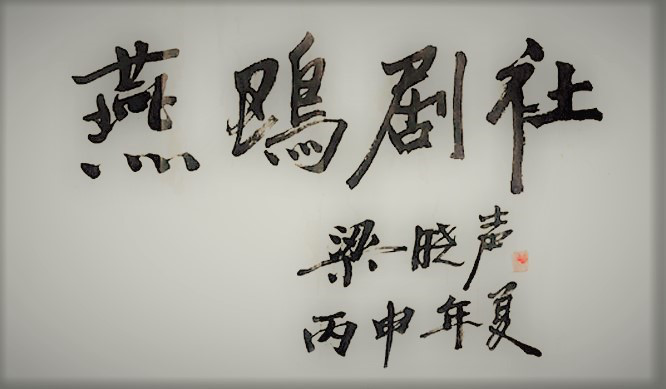 燕鴎剧社
梁晓声
丙申年夏